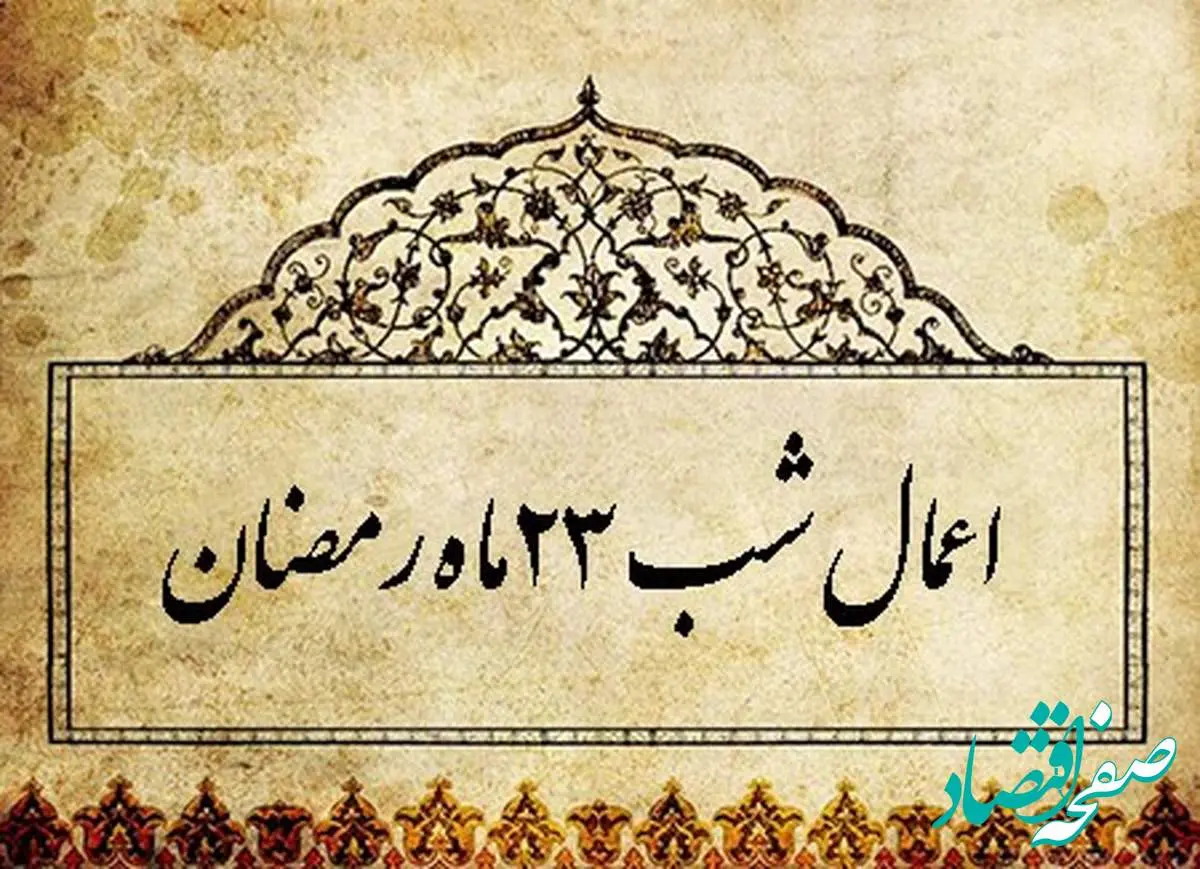 اعمال شب ۲۳ ماه رمضان
صفحه اقتصاد